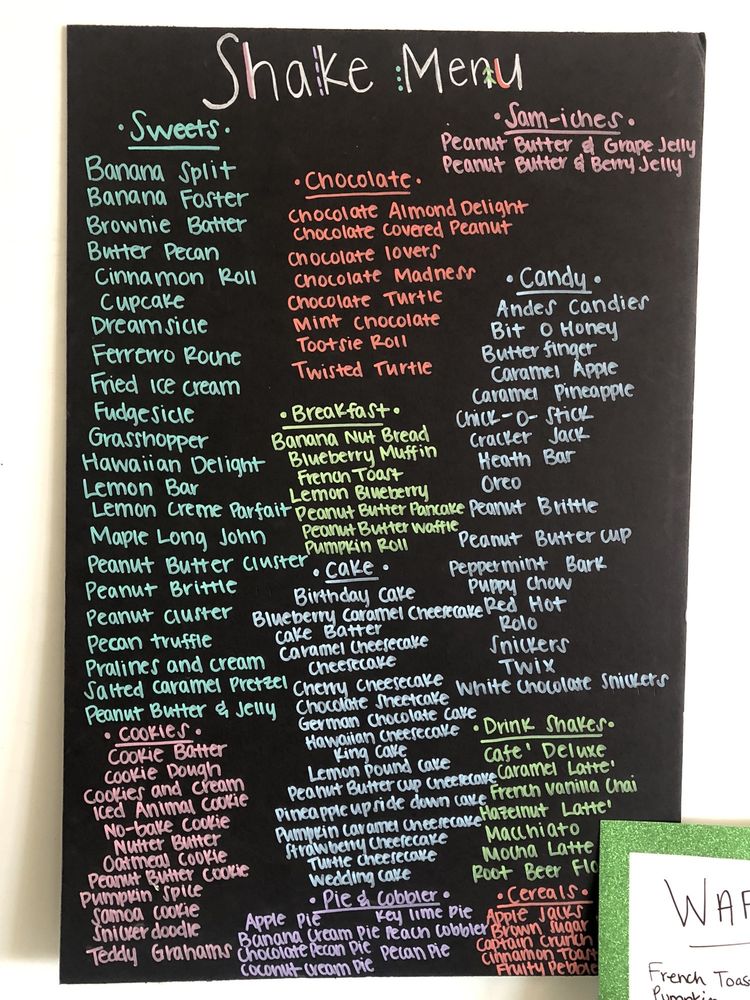 Shake Menu
Sweets
Banana Split
Banana Foster
Brownie Batter
Butter Pecan
Cinnamon Roll
Cupcake
Dreamsicle
Ferrerro Roche
Fried Ice cream
Fudgesicle
Grasshopper
Hawaiian Delight
Lemon Bar
Lemon Creme Parfait
Maple Long John
Peanut Butter Cluster
Peanut Brittle
Peanut Cluster
Pecan Truffle
Pralines and cream
Salted Caramel Pretzel
Peanut Butter & Jelly
Cookies
Cookie Batter
Cookie Dough
Cookies and Cream
Iced Animal Cookie
No-bake Cookie
Nutter Butter
Oatmeal Cookie
Peanut Butter Cookie
Pumpkin Spice
Samoa Cookie
Snickerdoodle
Teddy Grahams
Chocolate
Chocolate Almond Delight
Chocolate Covered Peanut
Chocolate lovers
Chocolate Madness
Chocolate Turtle
Mint Chocolate
Tootsie Roll
Twisted Turtle
Breakfast
Banana Nut Bread
Blueberry Muffin
French Toast
Lemon Blueberry
Peanut Butter Pancake
Peanut Butter Waffle
Pumpkin Roll
Cake
Birthday Cake
Blueberry Caramel Cheesecake
Cake Batter
Caramel Cheesecake
Cheesecake
Cherry Cheesecake
Chocolate Sheetcake
German Chocolate Cake
Hawaiian Cheesecake
King Cake
Lemon Pound Cake
Peanut Butter Cup Cheesecake
Pineapple upside down cake
Pumpkin Caramel Cheesecake
Strawberry Cheesecake
Turtle Cheesecake
Wedding Cake
Pie & Cobbler
Apple Pie
Banana Cream Pie
Chocolate Pecan Pie
Coconut Cream Pie
Key lime Pie
Peach Cobbler
Pecan Pie
Sam-iches
Peanut Butter & Grape Jelly
Peanut Butter & Berry Jelly
Candy
Andes Candies
Bit O Honey
Butterfinger
Caramel Apple
Caramel Pineapple
Chick-O-Stick
Cracker Jack
Heath Bar
Oreo
Peanut Brittle
Peanut Butter Cup
Peppermint Bark
Puppy Chow
Red Hot
Rolo
Snickers
Twix
White Chocolate Snickers
Drink Shakes
Cafe' Deluxe
Caramel Latte'
French Vanilla Chai
Hazelnut Latte'
Macchiato
Mocha Latte
Root Beer Flo
Cereals
Apple Jacks
Brown Sugar
Captain Crunch
Cinnamon Toast
Fruity Pebble
WAF
French Toas